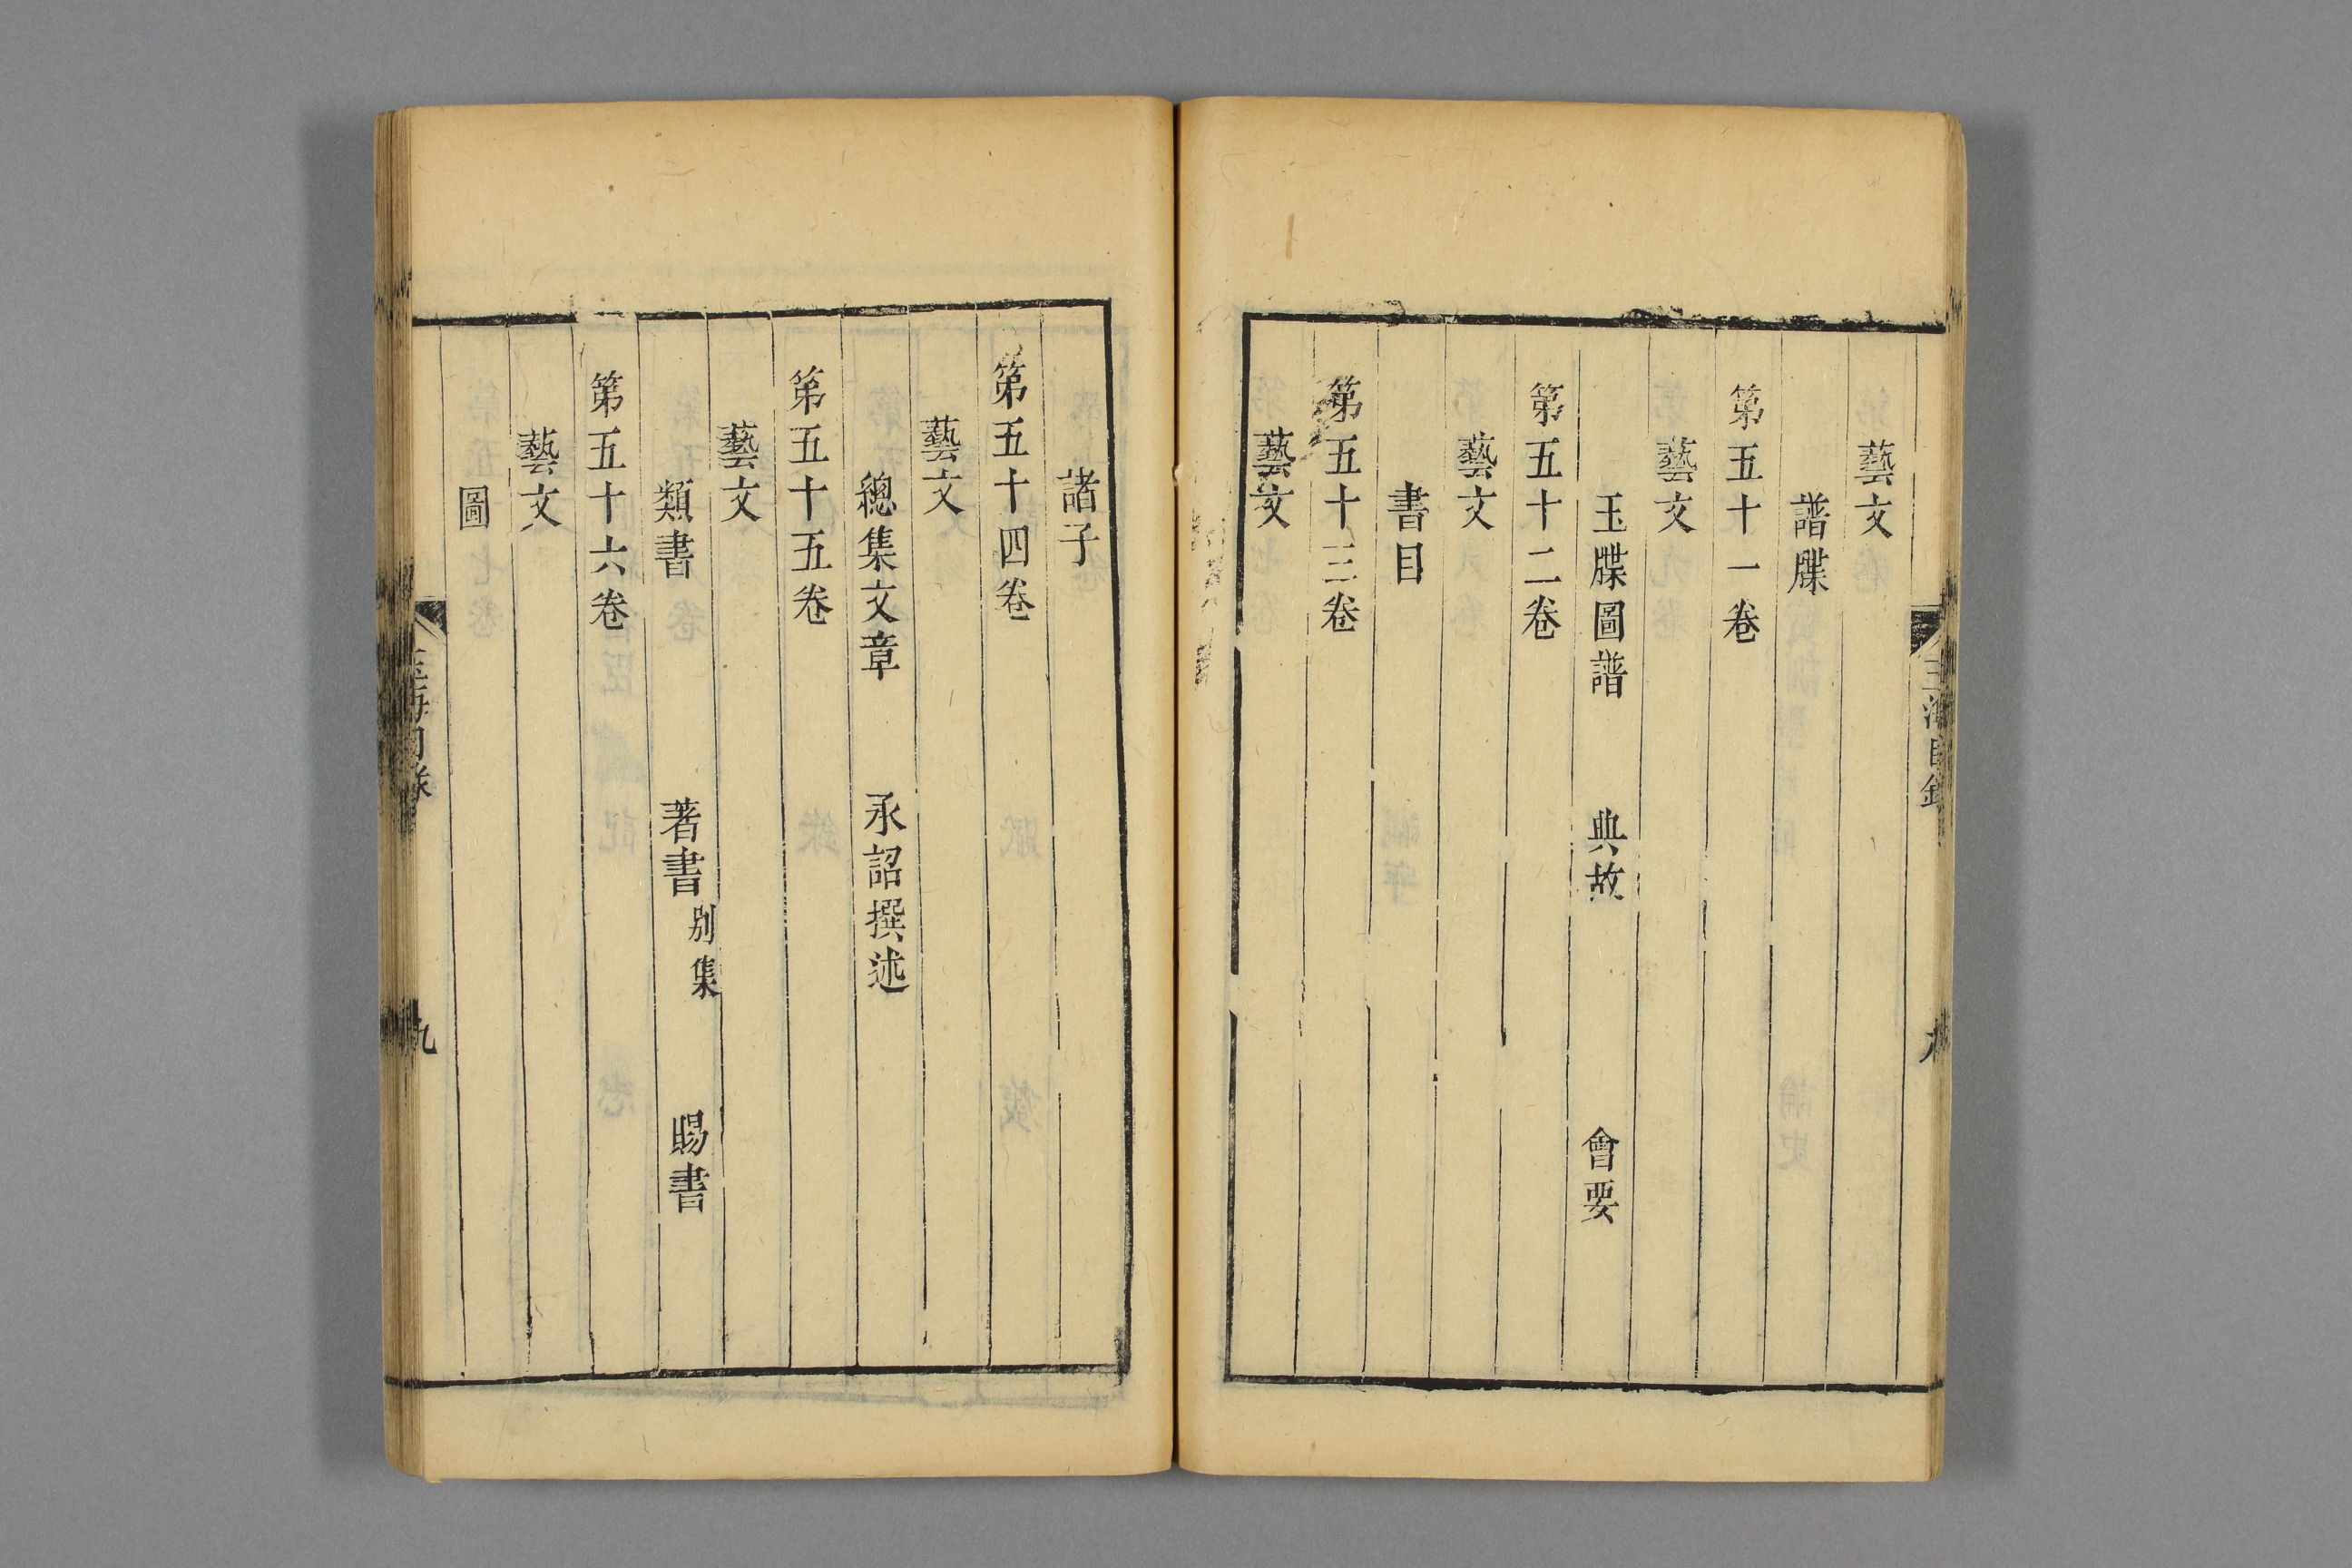 藝文
譜牒
第五十一卷
藝文
玉牒圖譜 典故 會要
第五十二卷
藝文
書目
第五十三卷
藝文
諸子
第五十四卷
藝文
總集文章 承詔撰述
第五十五卷
藝文
類書 著書別集 賜書
第五十六卷
藝文
圖
玉海目錄 九